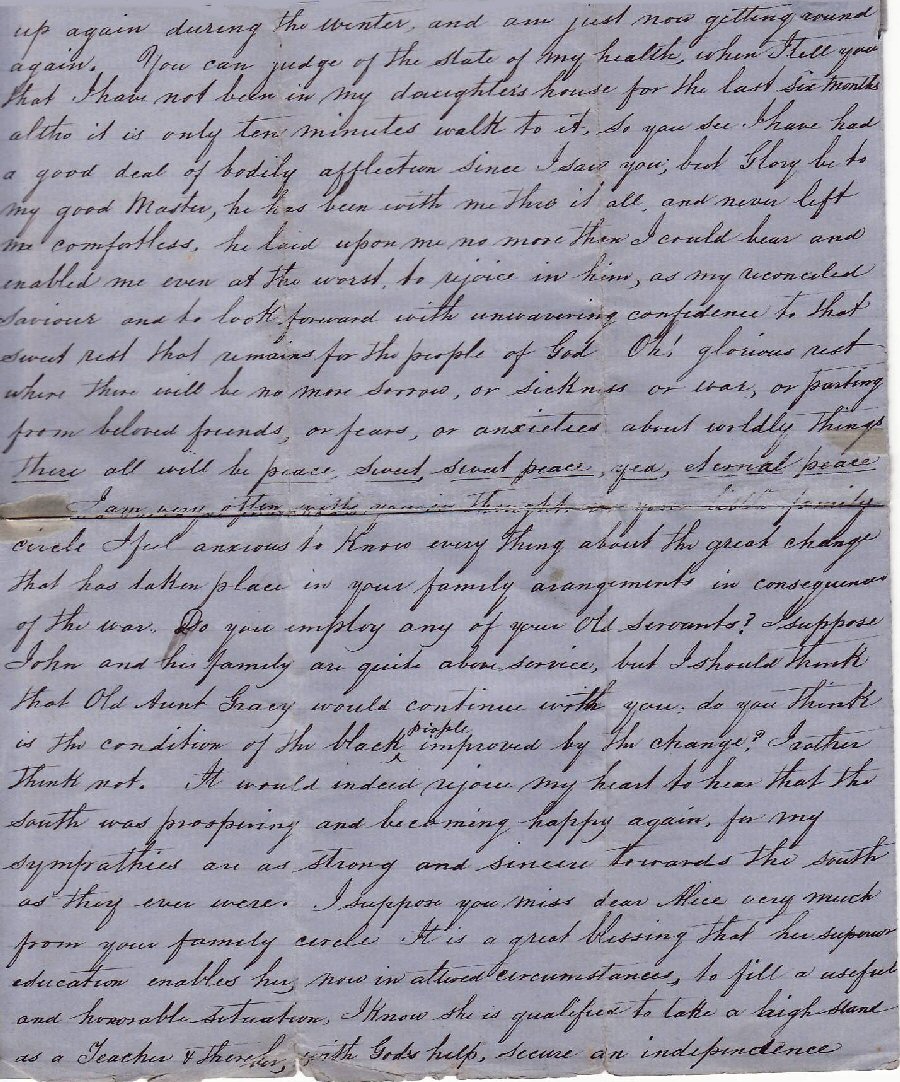 up again during the winter, and am just now getting round
again. You can judge of the state of my health, when I tell you
that I have not been in my daughters house for the last six months
altho it is only ten minutes walk to it, so you see I have had
a good deal of bodily afflection since I saw you, but Glory be to
my good Master, he has been with me thro it all, and never left
me comfortless, he laid upon me no more then I could bear and
enabled me even at the worst, to rejoice in him, as my reconciled
saviour and to look forward with unwavering confidence to that
sweet rest that remains for the people of God Oh! glorious rest
where there will be no more sorrow, or sickness or war, or parting
from beloved friends, or fears, or anxieties about worldly things
there all will be peace, sweet, sweet peace, yea, eternal peace
I am very often with you in thought in your family
circle I feel anxious to know every thing about the great change
that has taken place in your family arangements in consequence
of the war. Do you employ any of your Old Servants? I suppose
John and his family are quite above service, but I should think
that Old Aunt Gracy would continue with you. do you think
is the condition of the black people improved by the change? I rather
think not. It would indeed rejoice my heart to hear that the
south was prospering and becoming happy again, for my
sympathies are as strong and sincere towards the south
as they ever were. I suppose you miss dear Alice very much
from your family circle It is a great blessing that her superior
education enables her, now in altered circumstances, to fill a useful
and honorable situation, I know she is qualified to take a high stand
as a Teacher & thereby, with Gods help, secure an independence